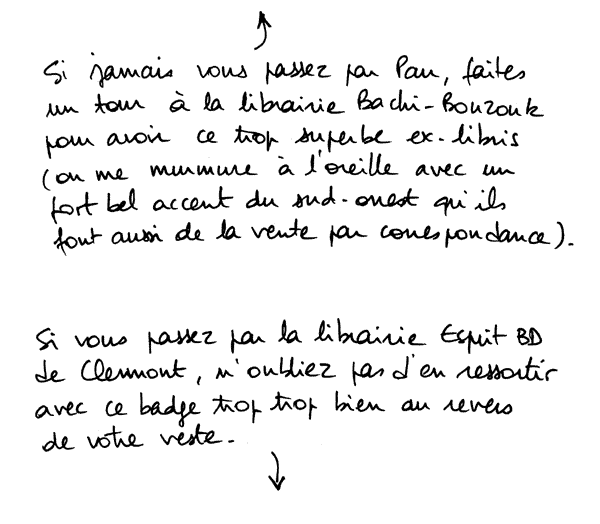 Si jamais vous passez par Pau, faites
un tour à la librairie Bachi-Bouzouk
pour avoir ce trop superbe ex-libris
(on me murmure à l'oreille avec un
fort bel accent du sud-ouest qu'ils
font aussi de la vente par correspondance).
Si vous passez par la librairie Esprit BD
de Clermont, n'oubliez pas d'en ressortir
avec ce badge trop trop bien au revers
de votre veste.